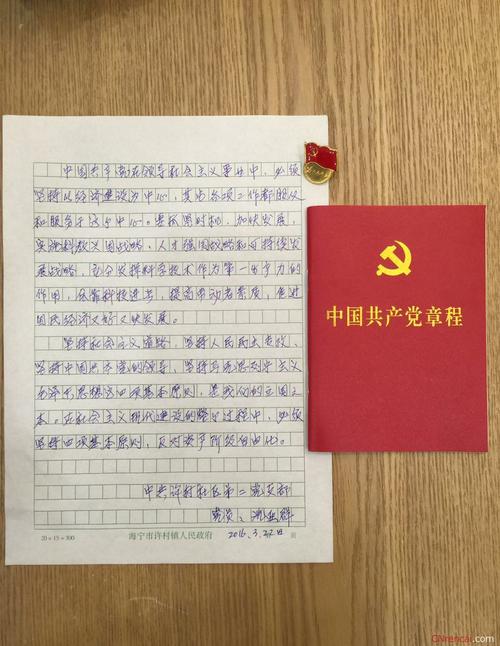 中国共产党在领导社会主义事业中，必须
坚持以经济建设为中心，其他各项工作都服从
和服务于这个中心。要抓紧时机，加快发展，
实施科教兴国战略、人才强国战略和可持续发
展战略，充分发挥科学技术作为第一生产力的
作用，依靠科技进步，提高劳动者素质，促进
国民经济又好又快发展。
坚持社会主义道路、坚持人民民主专政、
坚持中国共产党的领导、坚持马克思列宁主义
毛泽东思想这四项基本原则，是我们的立国之
本。在社会主义现代化建设的整个过程中，必须
坚持四项基本原则，反对资产阶级自由化。
中共许村社区第二党支部
党员：群
2016.3.22日
20×15=300
海宁市许村镇人民政府
中国共产党章程
CNrencai.com